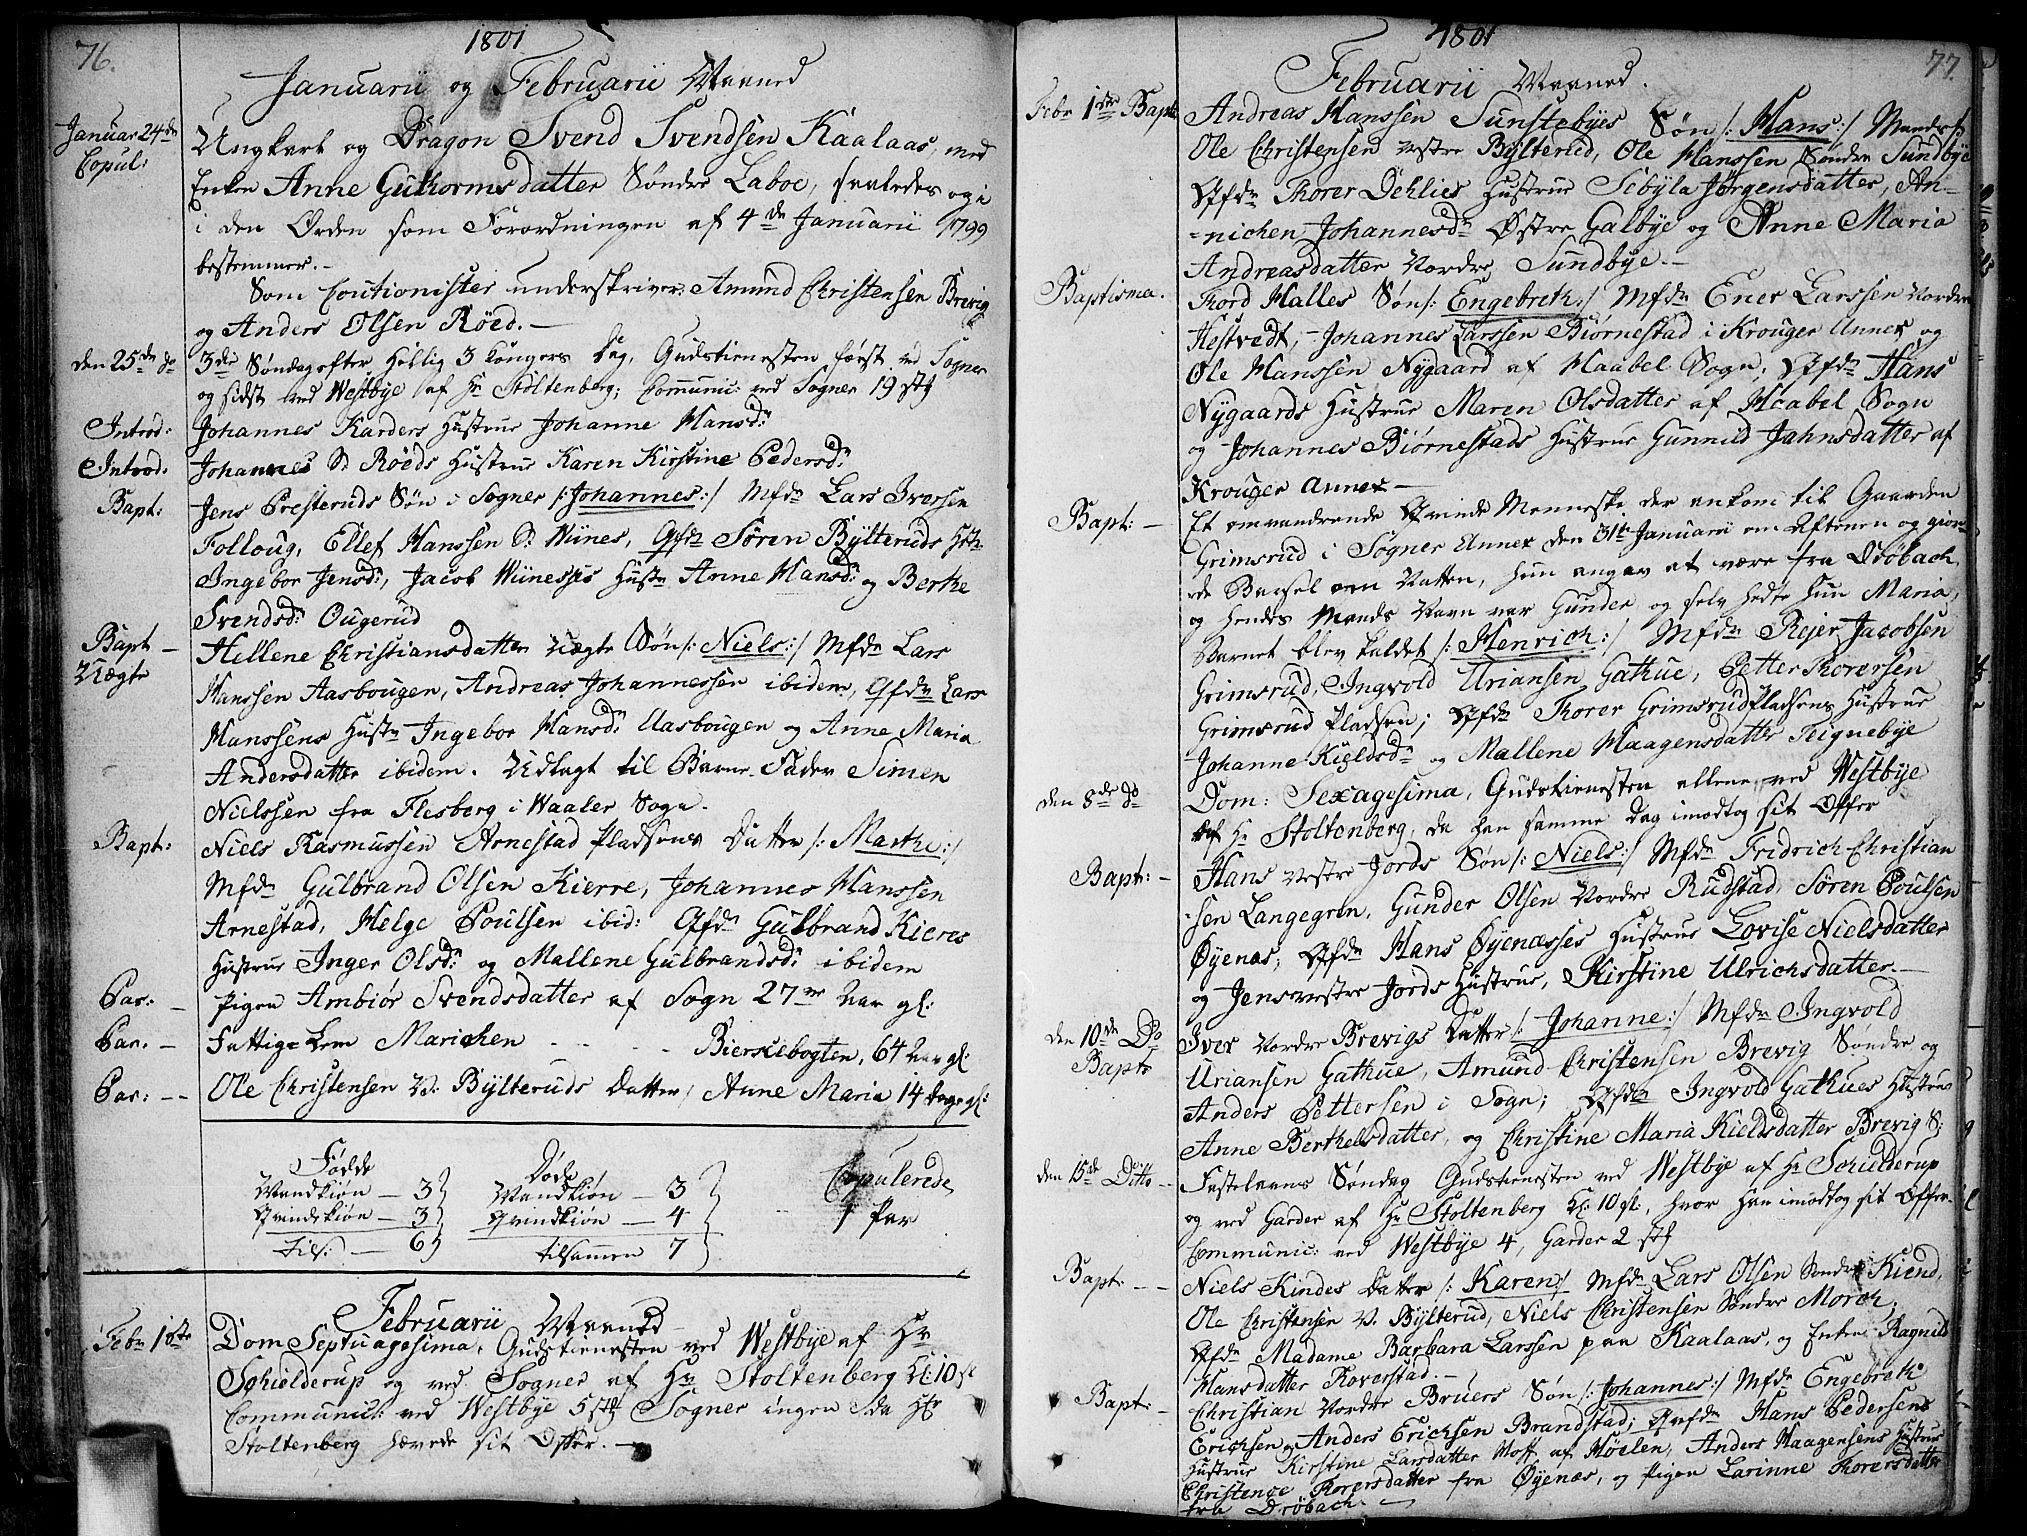 76.
1801
Januarii og Februarii Maaned
Januar 24de Copul: Ungkarl og Dragon Svend Svendsen Kaalaas, med
Enken Anne Guthormsdatter Søndre Laboe, saaledes og i
i den Orden som Forordningen af 4de Januarii 1799
bestemmer.-
Som Cautionister underskriver: Amund Christensen Brevig
og Anders Olsen Røed.-
den 25de do 3de Søndag efter Hellig 3 Kongers Dag, Gudstienesten først ved Sogner
og sidst ved Westbye af Hr Stoltenberg; Communic: ved Sogner 19 stk
Introd: Johannes Karders Hustrue Johanne Hansdr
Introd: Johannes S. Røeds Hustrue Karen Kirstine Pedersdr
Bapt: Jens Presteruds Søn i Sogner /:Johannes:/ Mfdr Lars Iversen
Folloug, Ellef Hanssen S. Wiines, Qfdr Søren Bylteruds Hstr
Ingebor Jensdr, Jacob Wiineses Hustr Anne Hansdr og Berthe
Svendsdr Ougerud
Bapt - Uægte Hellene Christiansdatter uægte Søn /:Niels:/ Mfdr Lars
Hanssen Aasbougen, Andreas Johannessen ibidem, Qfdr Lars
Hanssens Hustr Ingebor Hansdr Aasbougen og Anne Maria
Andersdatter ibidem. Udlagt til Barne-Fader Simen
Nielssen fra Flesberg i Waaler Sogn.
Bapt: Niels Rasmussen Arnestad Pladsens Datter /:Marthe:/
Mfdr Gulbrand Olsen Kierre, Johannes Hanssen
Arnestad, Helge Poulsen ibid: Qfdr Gulbrand Kieres
Hustrue Inger Olsdr og Mallene Gulbrandsdr ibidem
Par: - Pigen Ambiør Svendsdatter af Sogn 27 Aar gl:
Par. - Fattig-Lem Marichen - - - - Bierskebogten, 64 Aar gl:
Par: - - Ole Christensen V. Bylteruds Datter, Anne Maria 14 Dage gl:
Fødde Døde Copulerede
Mandkiøn - 3 Mandkiøn - 3 1 Par
Qvindekiøn - 3 Qvindkiøn - 4
tils: - 6 tilsammen 7
Februarii Maaned
Febr 1ste Dom Septuagesima, Gudstienesten ved Westbye af Hr
Schielderup og ved Sogner af Hr Stoltenberg Kl: 10 sl
Communic: ved Westbye 5 stk Sogner ingen da Hr
Stoltenberg hævede sit Offer.-
1801
77.
Februarii Maaned.
Febr 1ste Bapt Andreas Hanssen Sunstebyes Søn /:Hans:/ Mandsf:
Ole Christensen vestre Bylterud, Ole Hanssen Søndre Sundbye
Qfdr Thorer Dehlies Hustrue Sebyla Jørgensdatter, An-
-nichen Johannesdr Østre Galbye og Anne Maria
Andreasdatter Nordre Sundbye.-
Baptisma. Thord Halles Søn /:Engebreth:/ Mfdr Ener Larssen Nordre
Hestvedt, Johannes Larssen Biørnestad i Krouger Annex og
Ole Hanssen Nygaard af Haabel Sogn, Qfdr Hans
Nygaards Hustrue Maren Olsdatter af Haabel Sogn
og Johannes Biørnestads Hustrue Gunnild Jahnsdatter af
Krouger annex -
Bapt: - Et omvandrende Qvinde Menneske der ankom til Gaarden
Grimsrud i Sogner Annex den 31te Januarii om Aftenen og gior-
de Barsel om Natten, hun angav at være fra Drøbach,
og hendes Mands Navn var Gunder og selv hedte hun Maria,
Barnet blev kaldet /:Henrich:/ Mfdr Rejer Jacobsen
Grimsrud, Ingvold Uriansen Gathue, Petter Thorersen
Grimsrud Pladsen; Qfdr Thorer Grimsrudpladsens Hustrue
Johanne Kieldsdr og Mallene Haagensdatter Teignebye
den 8de do Dom: Sexagesima, Gudstienesten allene ved Westbye
af Hr Stoltenberg, da han samme Dag imodtog sit Offer
Bapt: - Hans vestre Jords Søn /:Niels:/ Mfdr Fridrich Christian
-sen Langegren, Gunder Olsen Nordre Rudstad, Søren Poulsen
Øyenæs; Qfdr Hans Øyenæsses Hustrue Lovise Nielsdatter
og Jens vestre Jords Hustrue, Kirstine Ulrichsdatter.-
den 10de Do Bapt Iver Nordre Brevigs Datter /:Johanne:/ Mfdr Ingvold
Uriansen Gathue, Amund Christensen Brevig Søndre og
Anders Pettersen i Sogn; Qfdr Ingvold Gathues Hustrue
Anne Berthelsdatter, og Christine Maria Kieldsdatter Brevig S:
den 15de Ditto - Fastelavns Søndag Gudstienesten ved Westbye af Hr Schielderup
og ved Garder af Hr Stoltenberg Kl: 10 sl:, hvor han imodtog sit Offer
Communic: ved Westbye 4, Garder 2 stk
Bapt: - - Niels Kindes Datter /:Karen:/ Mfdr Lars Olsen Søndre Kiend,
Ole Christensen V. Bylterud, Niels Christensen Søndre Morch,
Qfdr Madame Barbara Larssen paa Kaalaas, og Enken Ragnild
Hansdatter Roverstad.-
Bapt: - Christian Nordre Bruers Søn /:Johannes:/ Mfdr Engebreth
Erichsen, Anders Erichsen Brandstad; Qvfdr Hans Pedersens
Hustrue Kirstine Larsdatter Moss af Høelen, Anders Haagensens Hustrue
Christence Thorersdatter fra Øyenæs, og Pigen Larinne Thorersdatter
fra Drøbach.-